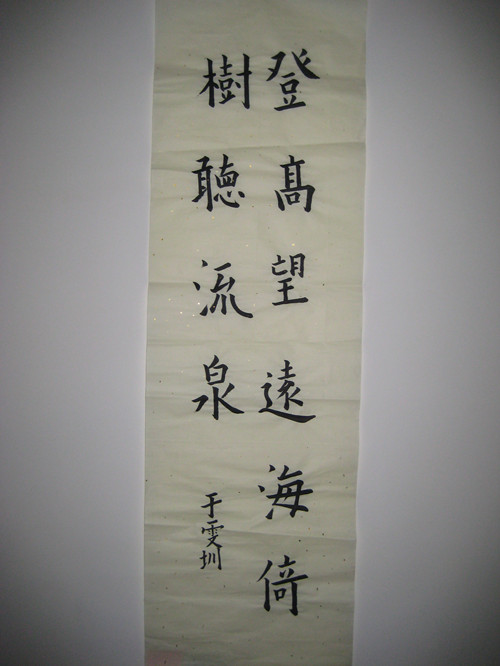 登高望遠海倚
樹聽流泉
于雯圳